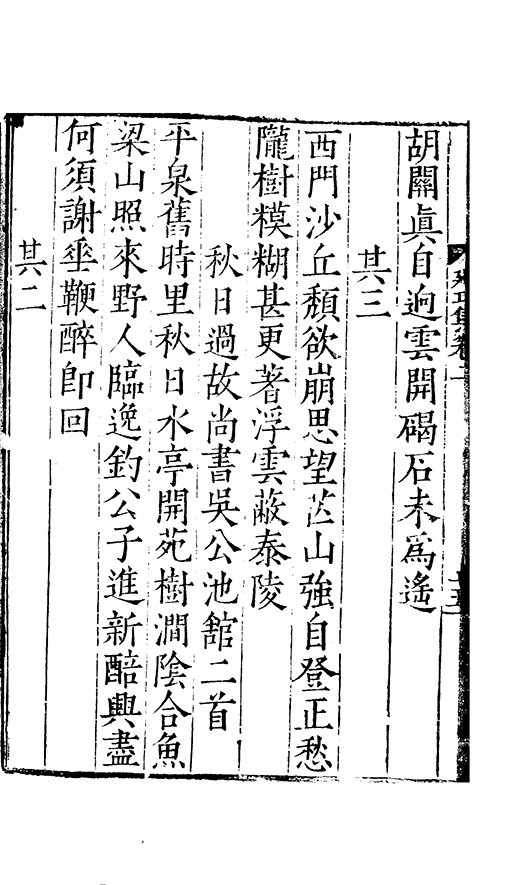 胡關眞自迥雲開碣石未爲遙
其三
西門沙丘頹欲崩思望茫山強自登正愁
隴樹糢糊甚更著浮雲蔽泰陵
秋日過故尚書吳公池舘二首
平泉舊時里秋日水亭開苑樹澗陰合魚
梁山照來野人臨逸釣公子進新醅興盡
何須謝垂鞭醉卽回
其二